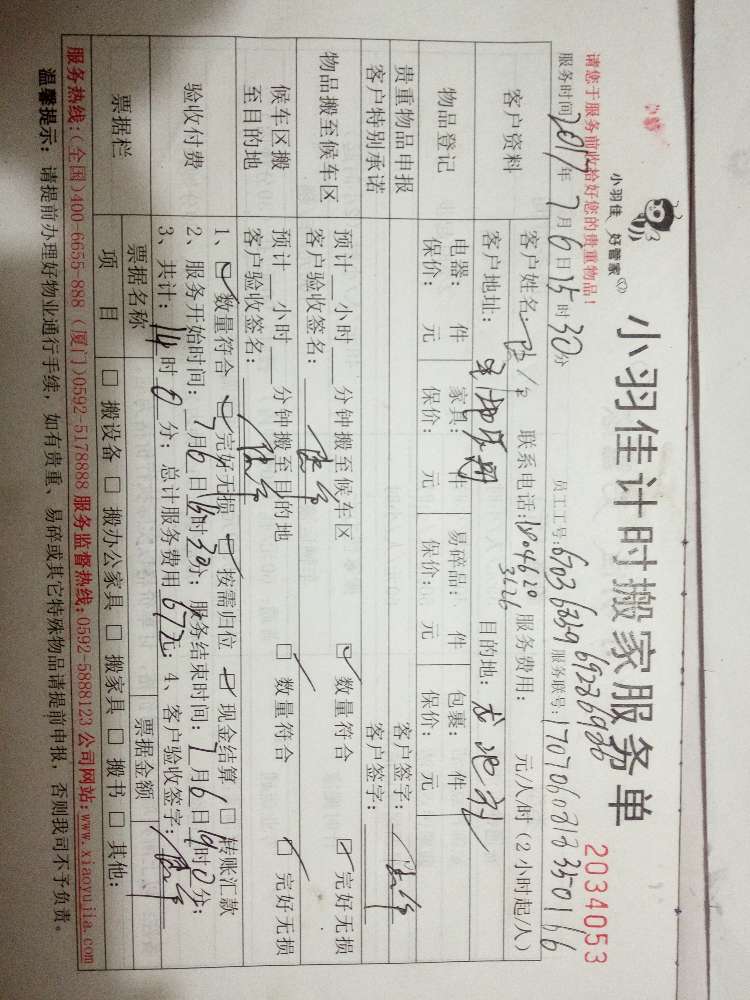 小羽佳 好管家
小羽佳计时搬家服务单
2034053
请您于服务前收拾好您的贵重物品!
服务时间2017年7月6日15时30分 员工工号: 服务联号:
客户资料
客户姓名: 联系电话: 服务费用: 元/人/时(2小时起/人)
客户地址: 目的地:
物品登记
电器: 件 家具: 件 易碎品: 件 包裹: 件
保价: 元 保价: 元 保价: 元 保价: 元
贵重物品申报 客户签字:
客户特别承诺 客户签字:
物品搬至候车区
预计 小时 分钟搬至候车区 □ 数量符合 □ 完好无损
客户验收签名:
候车区搬至目的地
预计 小时 分钟搬至目的地 □ 数量符合 □ 完好无损
客户验收签名:
验收付费
1、□ 数量符合 □ 完好无损 □ 按需归位 □ 现金结算 □ 转账汇款
2、服务开始时间: 7月6日 时30分; 服务结束时间: 7月6日19时0分;
3、共计: 时0分; 总计服务费用 672元; 4、客户验收签字:
票据栏
票据名称 票据金额
项 目 □ 搬设备 □ 搬办公家具 □ 搬家具 □ 搬书 □ 其他:
服务热线:(全国)400-6655-888 (厦门)0592-5178888 服务监督热线:0592-5888123 公司网站:www.xiaoyujia.com
温馨提示: 请提前办理好物业通行手续, 如有贵重、易碎或其它特殊物品请提前申报, 否则我司不予负责。